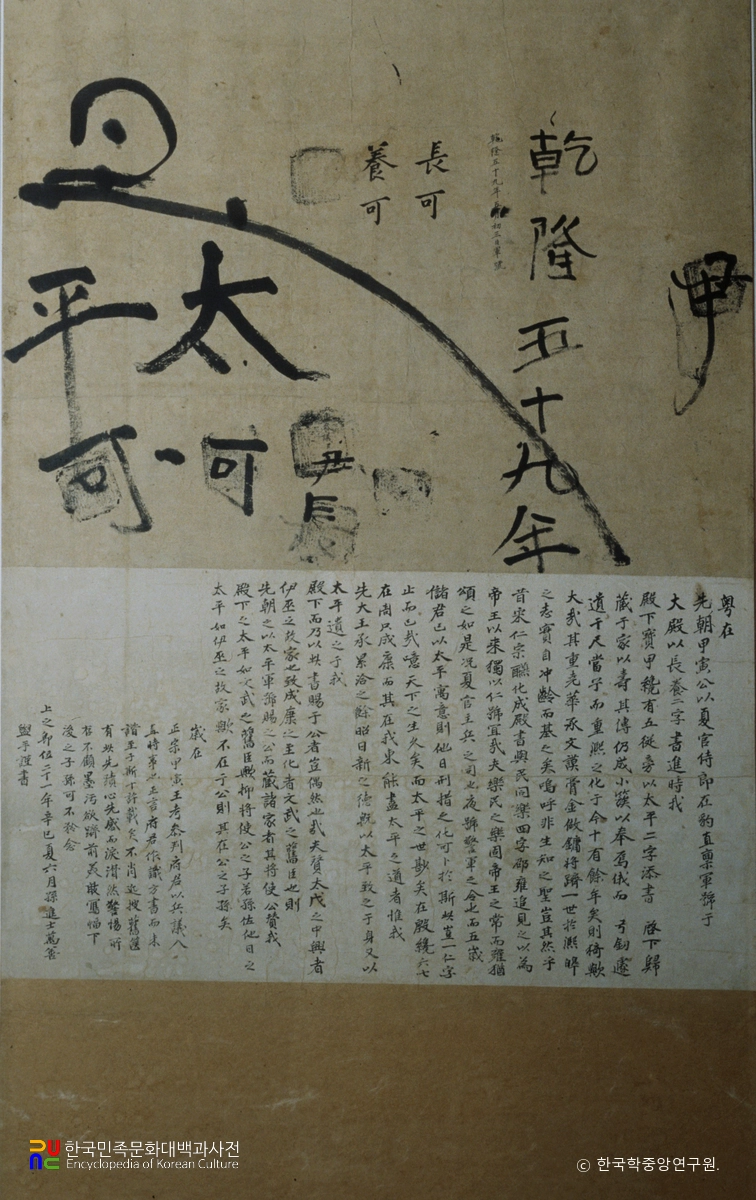 甲
乾隆五十九年
長可
養可
太平
可
可
尹長
粤在
先朝甲寅公以夏官侍郎在豹直稟軍號于
大殿以長養二字書進時我
殿下寶甲纔有五從旁以太平二字添書 啓下歸
藏于家以壽其傳仍成小簇以奉爲儀而 弓釖遽
遺千尺當乎而重熙之化于今十有餘年矣則猗歟
大哉其重光華承文謨膺金倣鏞將躋一世於熙皥
之志實自冲齡而基之矣嗚呼非生知之聖豈其然乎
昔宋仁宗酺化成殿書與民同樂四字邵雍追見之以爲
帝王以來獨以仁號宜哉夫樂民之樂固帝王之常而雍猶
頌之如是况夏官主兵之司也夜號警軍之令也而五歲
儲君已以太平寓意則他日刑措之化可卜於斯此豈一仁字
止而已哉噫天下之生久矣而太平之世尠矣在殷纔六七
在周只成康而其在我東能盡太平之道者惟我
先大王承累洽之餘昭日新之德旣以太平致之于身又以
太平遺之于我
殿下而乃以此書賜于公者豈偶然也哉夫贊太戊之中興者
伊巫之故家也致成康之至化者文武之舊臣也則
先朝之以太平軍號賜之公而藏諸家者其將使公贊我
殿下之太平如文武之舊臣歟抑將使公之子若孫佐他日之
太平如伊巫之故家歟不在于公則其在公之子孫矣
歲在
正宗甲寅王考參判府君以兵議入
直時事也王考府君作識方書而未
於斯可許藏矣不肖追搜舊篋
有此先蹟心先感而淚潸然警惕所
在不顧墨污欲蹟前美敢寫幅下
後之子孫可不於念
上之卽位二十一年辛巳夏六月孫進士萬
盥手謹書
한국민족문화대백과사전
Encyclopedia of Korean Culture
ⓒ 한국학중앙연구원.